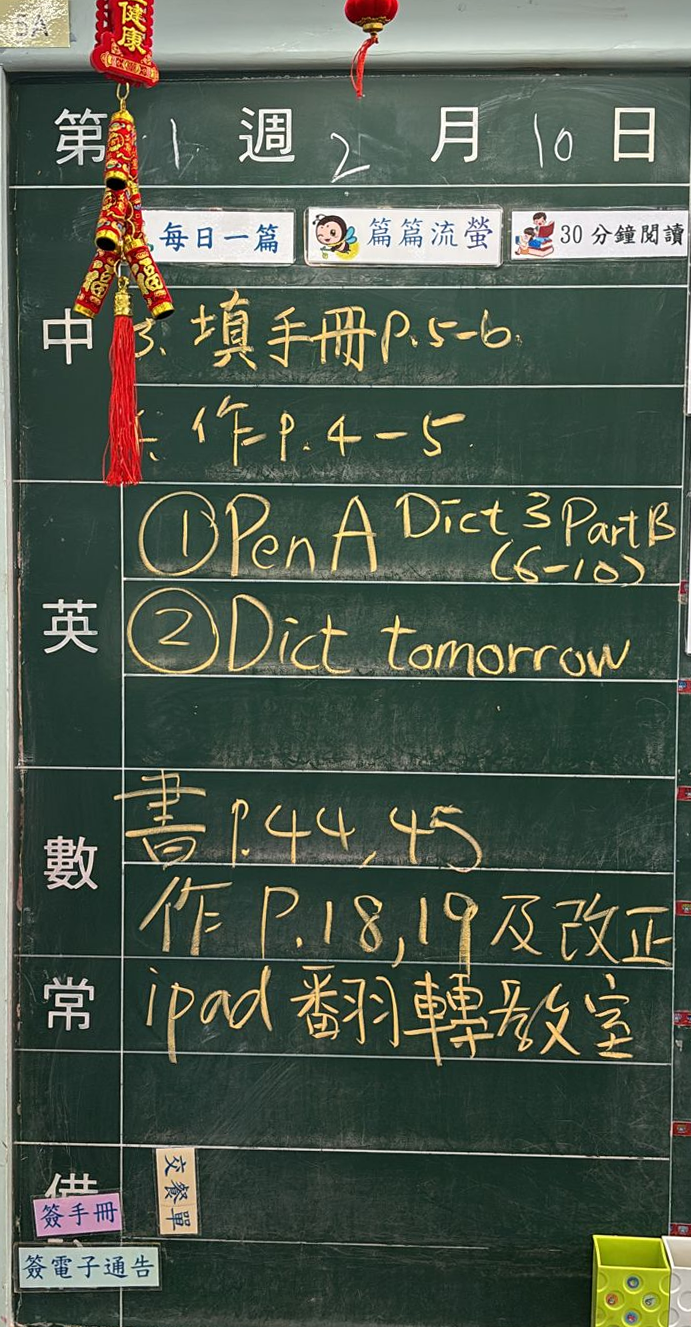 5A
健康
第 1 週 2 月 10 日
每日一篇 篇篇流螢 30分鐘閱讀
中 3. 填手冊P.5-6.
作P.4-5.
英 ① Pen A Dict 3 Part B (6-10)
② Dict tomorrow
數 書 P.44,45
作 P.18,19及改正
常 ipad 翻轉教室
交餐單
簽手冊
簽電子通告